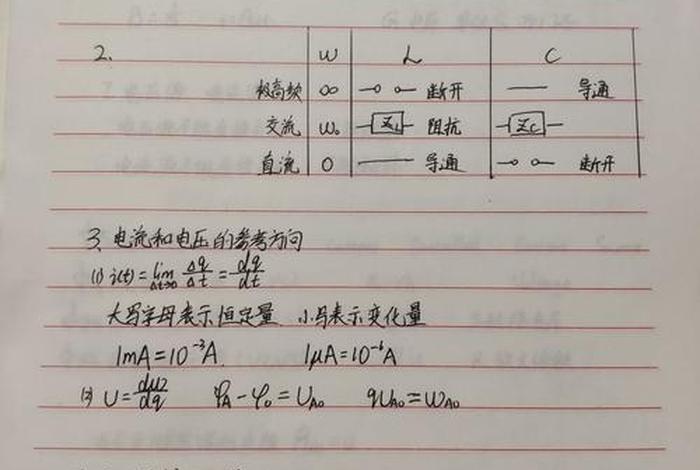 2. ω L C
极高频 ∞ 断开 导通
交流 ω₀ Z_L 阻抗 Z_C
直流 0 导通 断开
3、电流和电压的参考方向
(1) i(t)=lim Δt→0 Δq/Δt=dq/dt
大写字母表示恒定量 小写表示变化量
1mA=10⁻³A. 1μA=10⁻⁶A
(2) U=dω/dq φ_A-φ_0=U_A0 qU_A0=W_A0